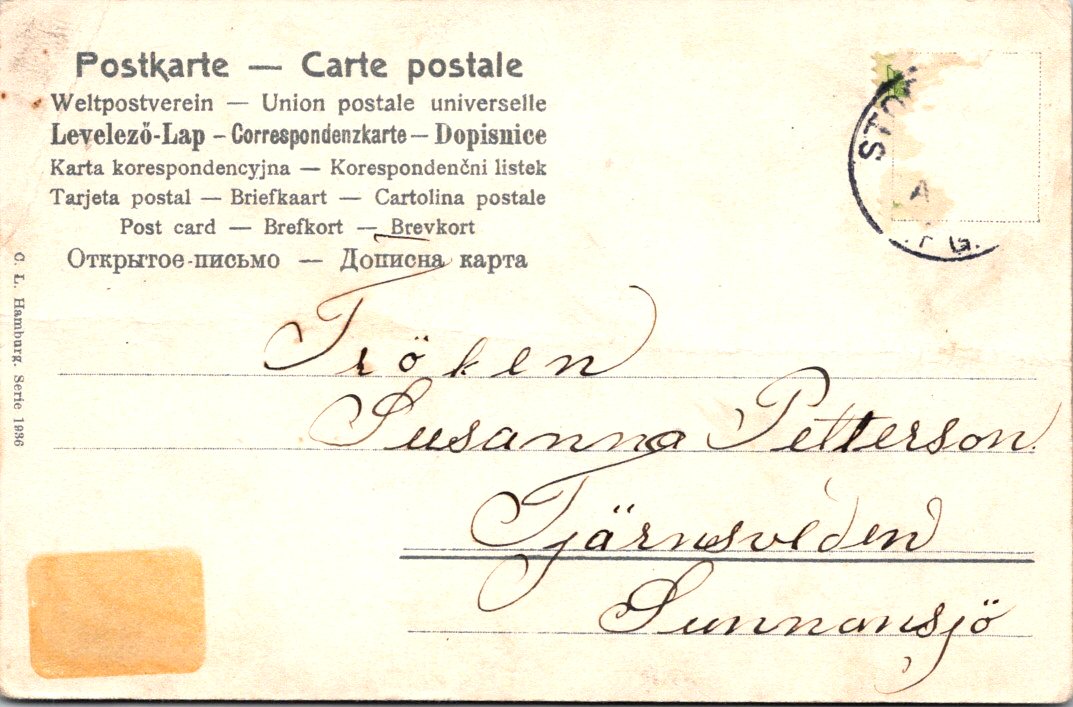 Postkarte — Carte postale
Weltpostverein — Union postale universelle
Levelező-Lap – Correspondenzkarte – Dopisnice
Karta korespondencyjna — Korespondenčni listek
Tarjeta postal — Briefkaart — Cartolina postale
Post card — Brefkort — Brevkort
Открытое-письмо — Дописна карта
STO
A
G.
C. L. Hamburg. Serie 1936
Fröken
Susanna Petterson
Tjärnsveden
Sunnansjö